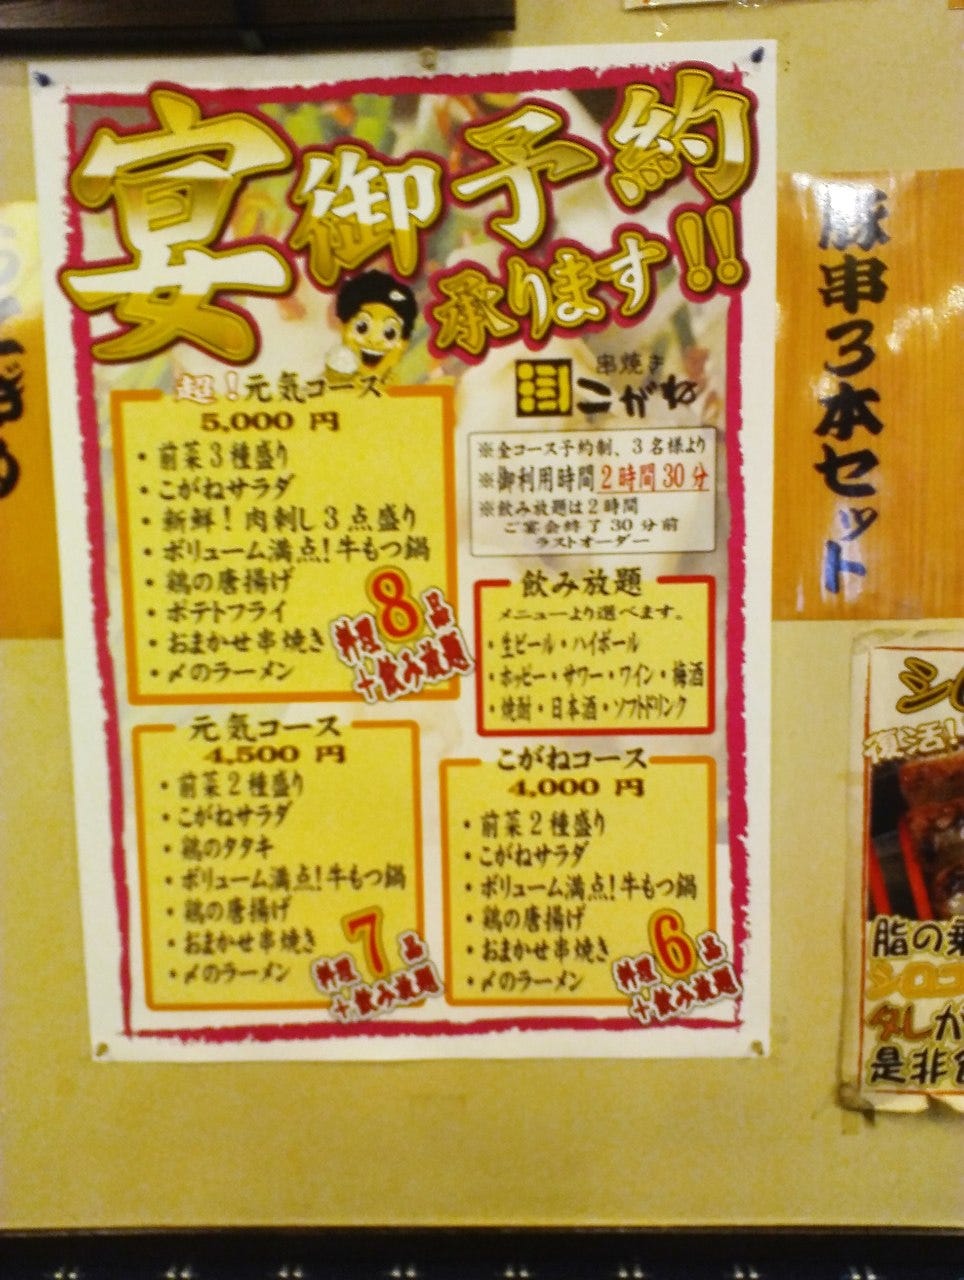 宴御予約
承ります!!
串焼き
こがね
※全コース予約制、3名様より
※御利用時間2時間30分
※飲み放題は2時間
ご宴会終了30分前
ラストオーダー
超!元気コース
5,000 円
・前菜3種盛り
・こがねサラダ
・新鮮!肉刺し3点盛り
・ボリューム満点!牛もつ鍋
・鶏の唐揚げ
・ポテトフライ
・おまかせ串焼き
・〆のラーメン
料理8品
+飲み放題
飲み放題
メニューより選べます。
・生ビール・ハイボール
・ホッピー・サワー・ワイン・梅酒
・焼酎・日本酒・ソフトドリンク
元気コース
4,500 円
・前菜2種盛り
・こがねサラダ
・鶏のタタキ
・ボリューム満点!牛もつ鍋
・鶏の唐揚げ
・おまかせ串焼き
・〆のラーメン
料理7品
+飲み放題
こがねコース
4,000 円
・前菜2種盛り
・こがねサラダ
・ボリューム満点!牛もつ鍋
・鶏の唐揚げ
・おまかせ串焼き
・〆のラーメン
料理6品
+飲み放題
豚串3本セット
シロ
復活!
脂の
シロコ
タレが
是非